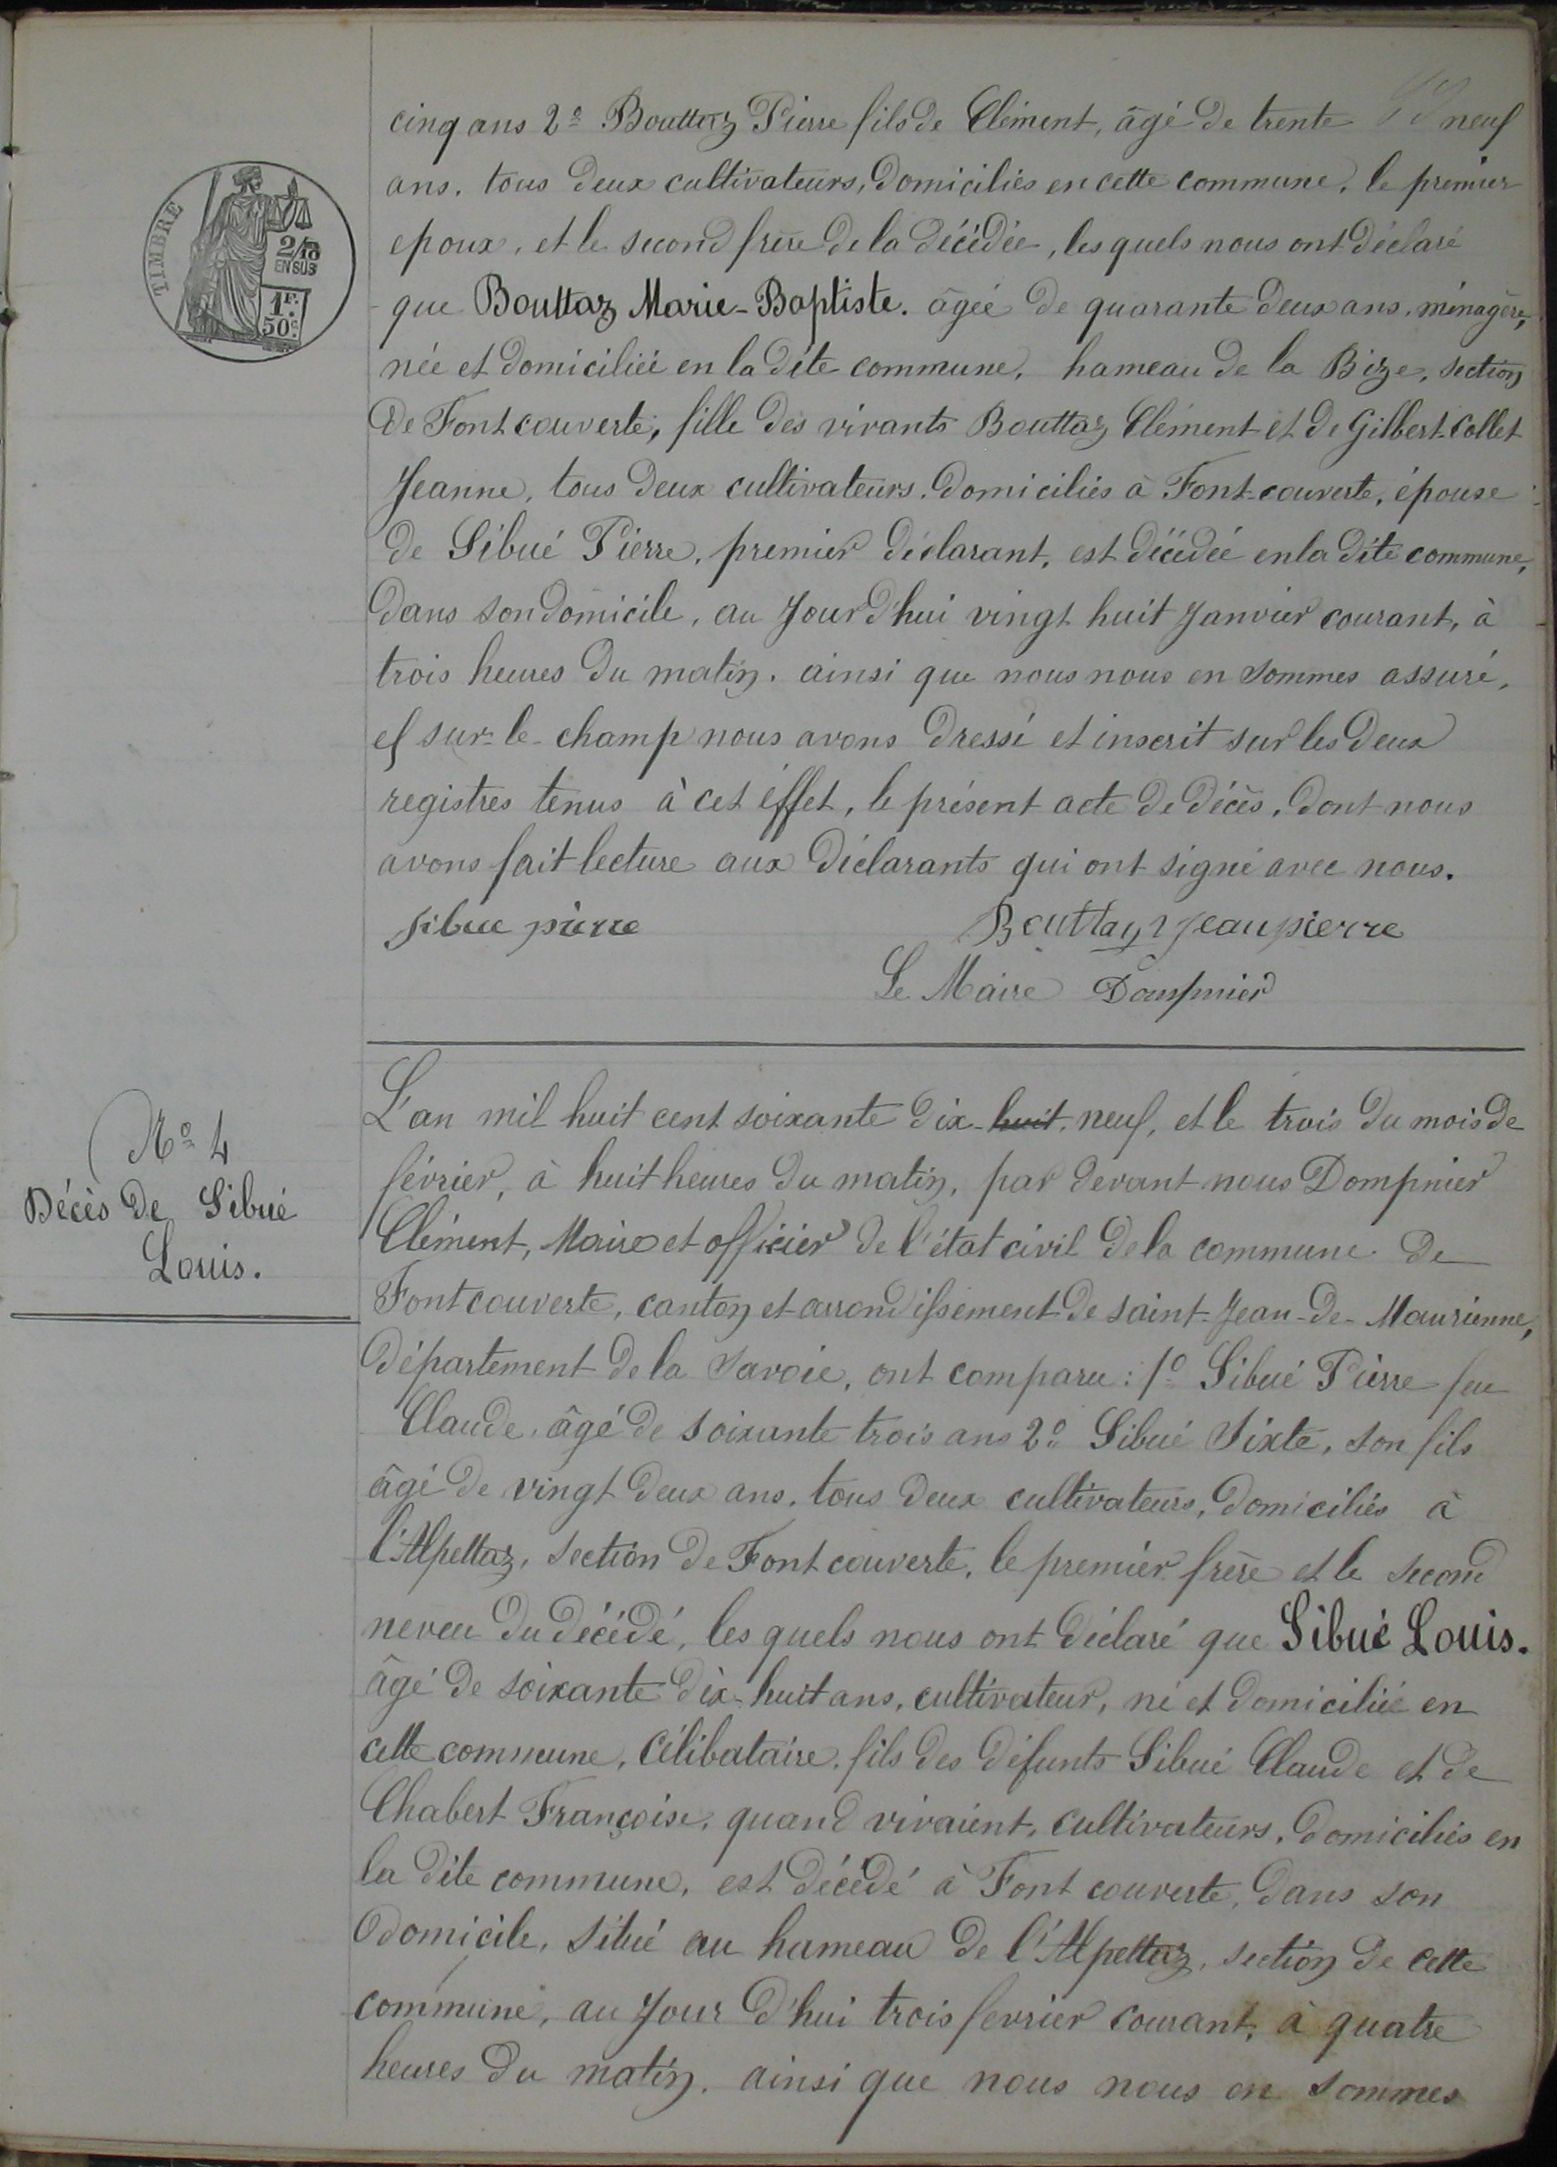 cinq ans 2º Bouttaz Pierre fils de Clément, âgé de trente neuf
ans. tous deux cultivateurs, domiciliés en cette commune, le premier
epoux, et le second frère de la décédée, les quels nous ont déclaré
que Bouttaz Marie-Baptiste. âgée de quarante deux ans, ménagère,
née et domiciliée en la dite commune, hameau de la Bize, section
de Fontcouverte, fille des vivants Bouttaz Clément et de Gilbert-Collet
Jeanne, tous deux cultivateurs, domiciliés à Font-couverte, épouse
de Sibué Pierre, premier déclarant, est décédée en la dite commune,
dans son domicile, au Jour d'hui vingt huit Janvier courant, à
trois heures du matin. ainsi que nous nous en sommes assuré,
et sur-le-champ nous avons dressé et inscrit sur les deux
registres tenus à cet éffet, le présent acte de décès, dont nous
avons fait lecture aux déclarants qui ont signé avec nous.
Sibue pierre Bouttaz jean pierre
Le Maire Dompnier
TIMBRE
2/10
EN SUS
1F.
50c.
Nº 4
Décès de Sibué
Louis.
L'an mil huit cent soixante dix-huit neuf, et le trois du mois de
février, à huit heures du matin, par devant nous Dompnier
Clément, Maire et officier de l'état civil de la commune de
Fontcouverte, canton et arrondissement de saint-Jean-de-Maurienne,
département de la Savoie, ont comparu : 1º Sibué Pierre feu
Claude, âgé de soixante trois ans 2º Sibué Sixte, son fils
âgé de vingt deux ans, tous deux cultivateurs, domiciliés à
l'Alpettaz, section de Fontcouverte, le premier frère et le second
neveu du décédé, les quels nous ont déclaré que Sibué Louis.
âgé de soixante dix-huit ans, cultivateur, né et domiciliée en
cette commune, célibataire, fils des défunts Sibué Claude et de
Chabert Françoise, quand vivaient, cultivateurs, domiciliés en
la dite commune, est décédé à Font couverte, dans son
domicile, situé au hameau de l'Alpettaz, section de cette
commune, au Jour d'hui trois fevrier courant, à quatre
heures du matin. ainsi que nous nous en sommes